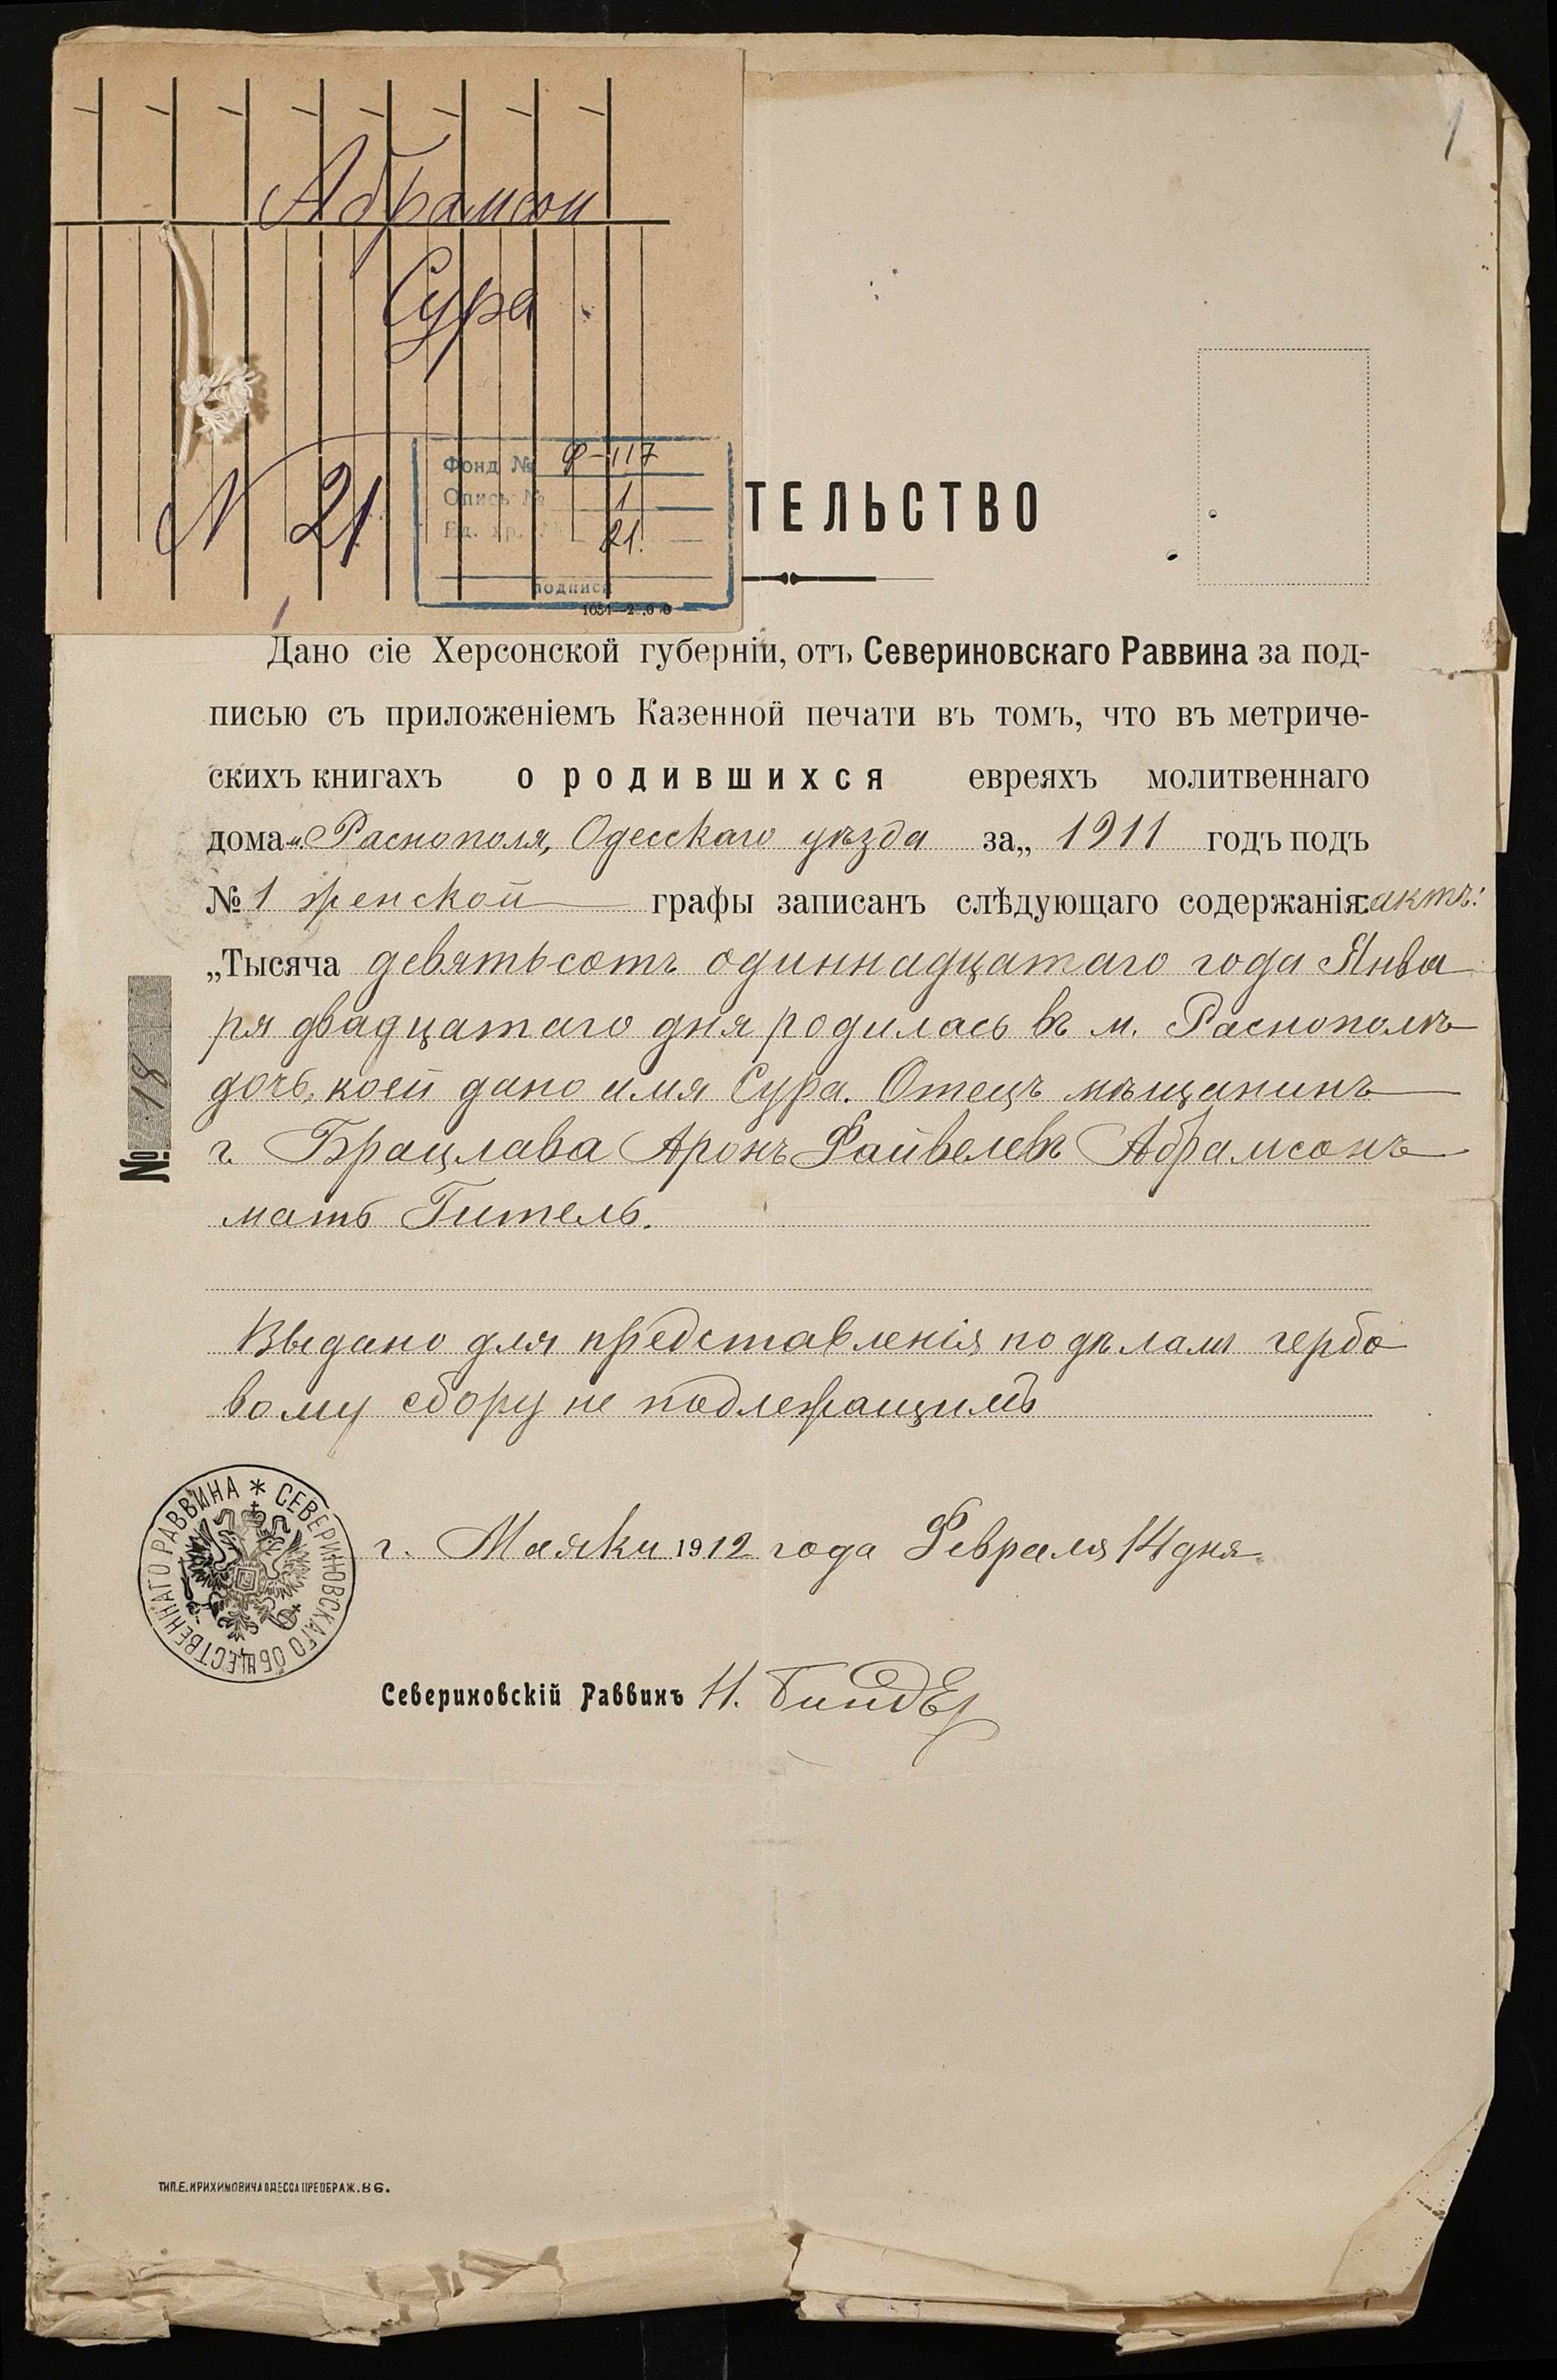 1
Абрамсон
Сура
N 21
Фонд № Ф-117
Опись № 1
Ед. хр. № 21.
подпись
ТЕЛЬСТВО
Дано сіе Херсонской губерніи, отъ Севериновскаго Раввина за под-
писью съ приложеніемъ Казенной печати въ томъ, что въ метриче-
скихъ книгахъ о родившихся евреяхъ молитвеннаго
дома м. Раснополя, Одесскаго уѣзда за „ 1911 годъ подъ
№ 1 женской графы записанъ слѣдующаго содержанія: актъ:
„Тысяча девятьсотъ одиннадцатаго года Янва
ря двадцатаго дня родилась въ м. Раснополѣ
дочь, коей дано имя Сура. Отецъ мѣщанинъ
г. Брацлава Аронъ Файвелевъ Абрамсонъ
мать Гитель.
Выдано для представленія по дѣламъ гербо
вому сбору не подлежащимъ
№ 18
СЕВЕРИНОВСКАГО ОБЩЕСТВЕННАГО РАВВИНА *
г. Маяки 1912 года Февраля 14 дня
Севериновскій Раввинъ Н. Биндер
ТИП. Е. КРИХИМОВИЧА ОДЕССА ПРЕОБРАЖ. 86.